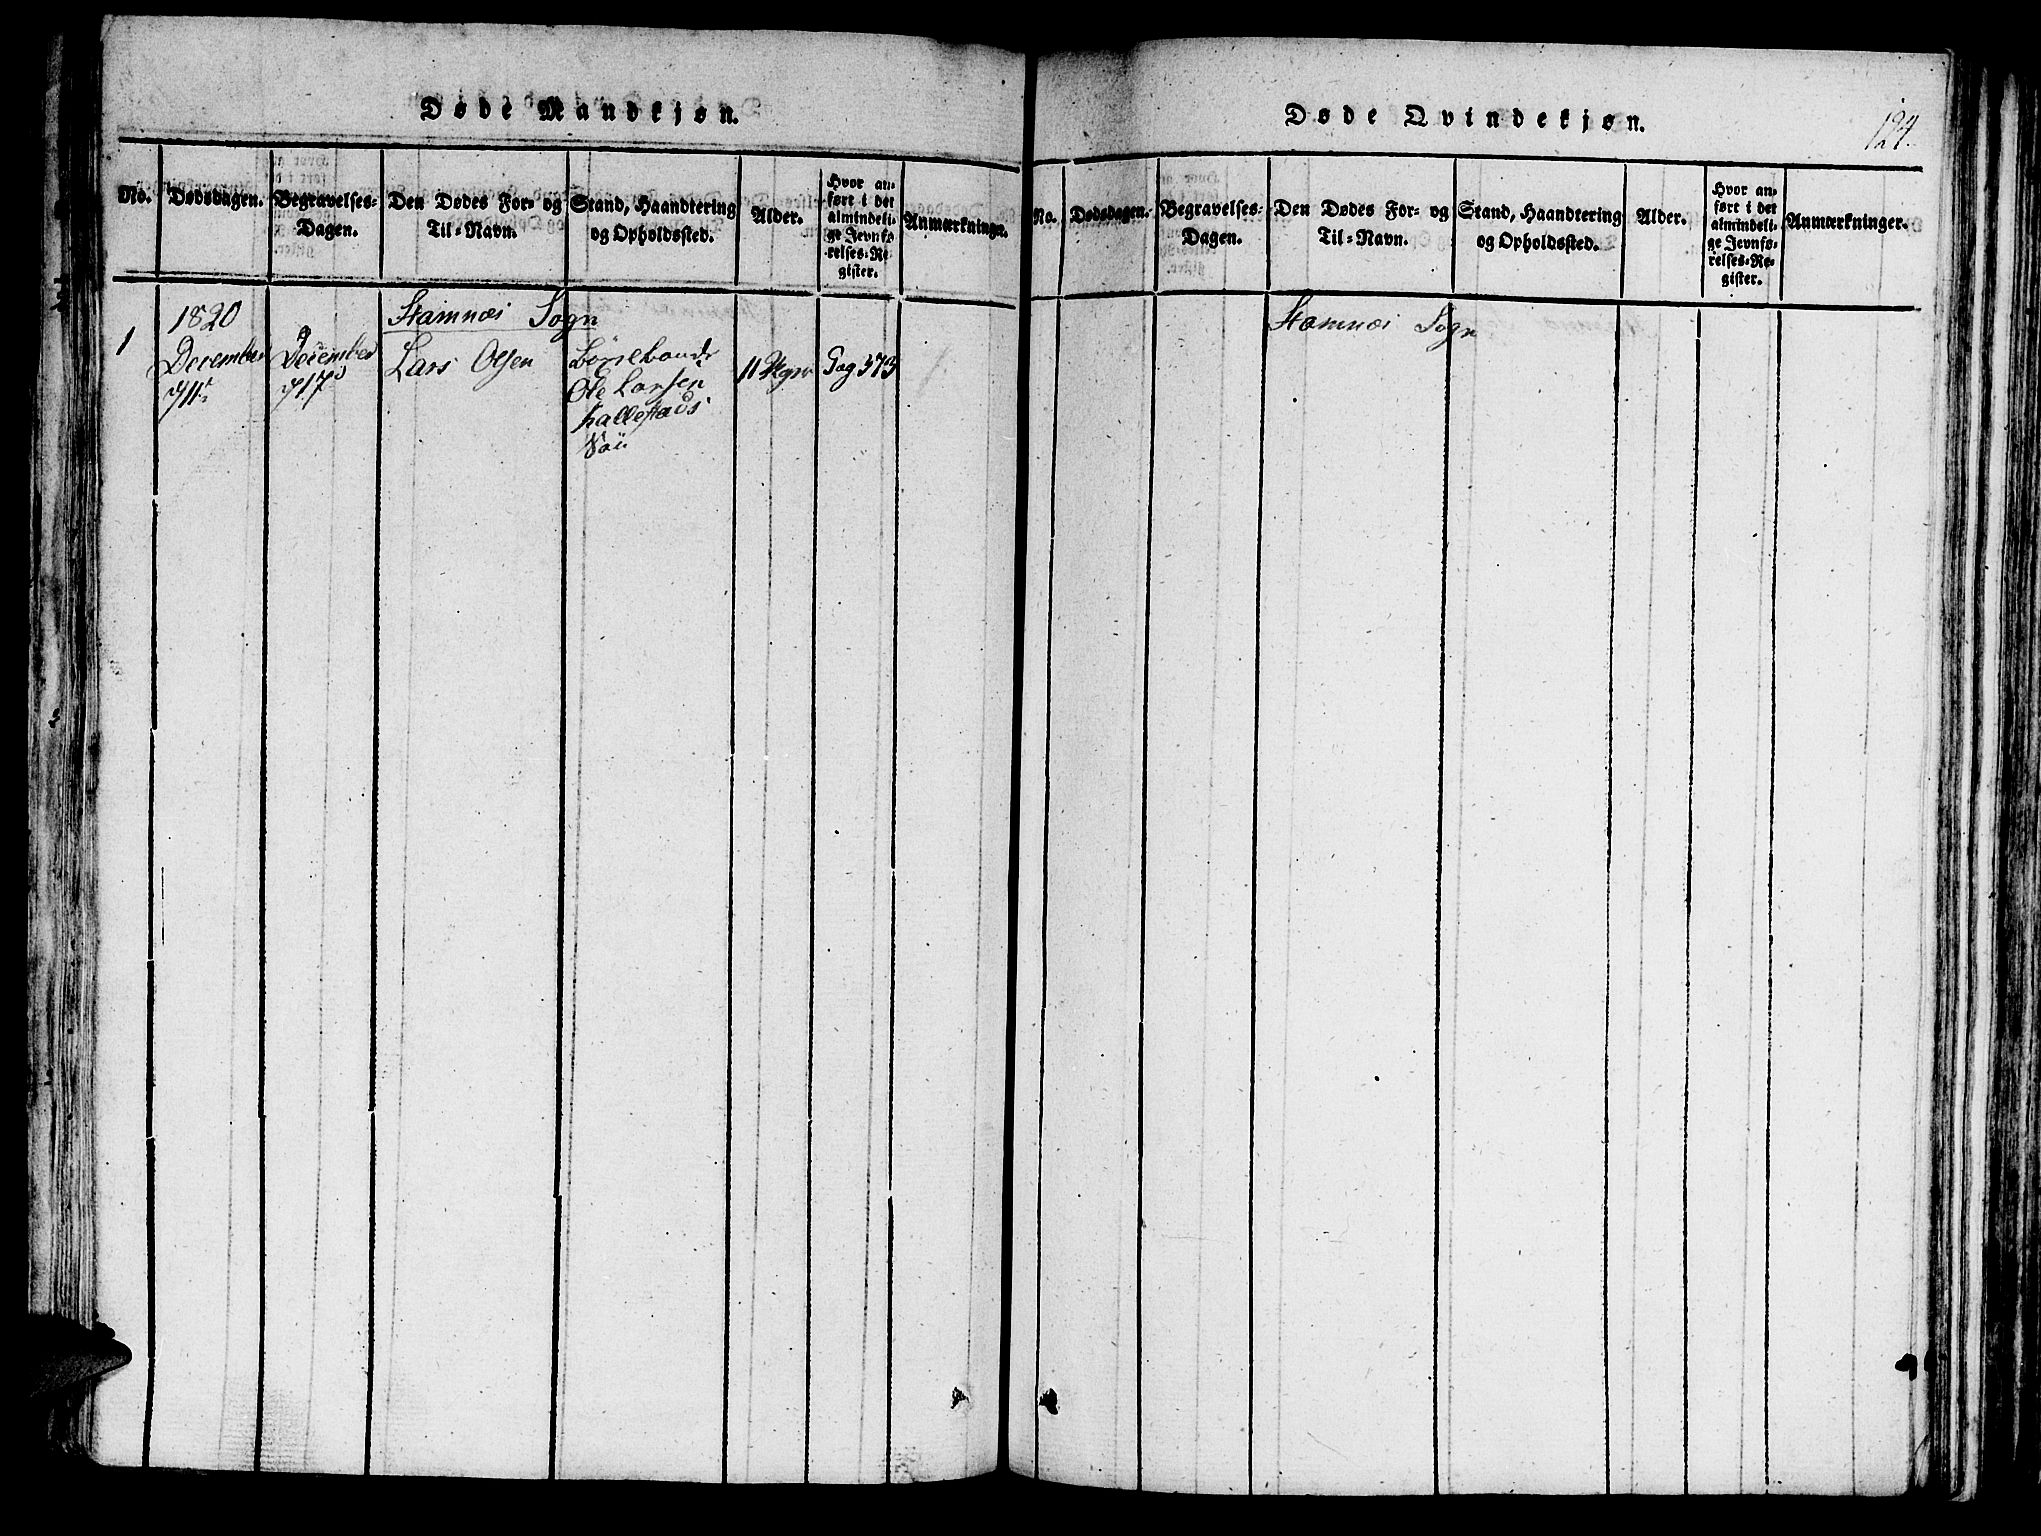 Døde Mandkjøn.
No.
Dødsdagen.
Begravelses-
Dagen.
Den Dødes For- og
Til-Navn.
Stand, Haandtering
og Opholdssted.
Alder.
Hvor an-
ført i det
almindeli-
ge Jevnfø-
relses-Re-
gister.
Anmærkninge.
Stamnæs Sogn
1
1820
December
d 11te
December
d 17de
Lars Olsen
Ole Larsen
hallestads
Søn
11 Uger
Pag 373
Døde Qvindekjøn.
124.
No.
Dødsdagen.
Begravelses-
Dagen.
Den Dødes For- og
Til-Navn.
Stand, Haandtering
og Opholdssted.
Alder.
Hvor an-
ført i det
almindeli-
ge Jevnfø-
relses-Re-
gister.
Anmærkninger.
Stamnæs Sogn